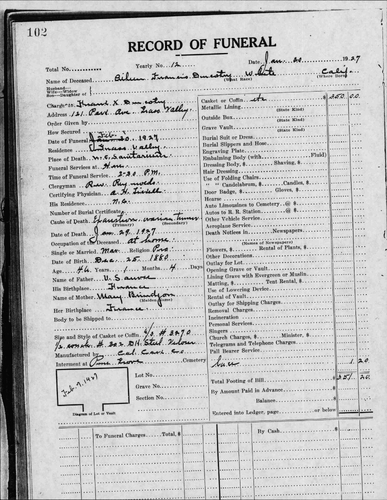 102
RECORD OF FUNERAL
Total No. Yearly No. 12 Date, Jan. 1927
Name of Deceased, Francis White Calif.
(What Race) (Where Born)
Husband
Wife-Widow
Son-Daughter of
Charge to Frank X.
Address 121 Park Ave. Grass Valley
Order Given by
How Secured
Date of Funeral 1927
Residence Grass Valley
Place of Death, N.C. Sanitarium
Funeral Services at Home
Time of Funeral Service 2:30 P.M.
Clergyman Rev. Reynolds
Certifying Physician
His Residence, N.C.
Number of Burial Certificate
Cause of Death
(Primary) (Secondary)
Date of Death Jan 29, 1927
Occupation of the Deceased, at home
Single or Married, Mar Religion Pro.
Date of Birth, Dec. 25, 1880
Aged 46 Years Months 4 Days
Name of Father,
His Birthplace France
Name of Mother, Mary
Her Birthplace France
Body to be Shipped to
Size and Style of Casket or Coffin, 6/3 #3270
Manufactured by Cal. Cask. Co.
Interment at Pine Grove Cemetery
Feb. 9, 1927
Diagram of Lot or Vault
Lot No.
Grave No.
Section No.
Casket or Coffin, etc $ 250.00
Metallic Lining
(State Kind)
Outside Box
(State Kind)
Grave Vault
(State Kind)
Burial Suit or Dress
Burial Slippers and Hose
Engraving Plate
Embalming Body (with Fluid)
Dressing Body, $ Shaving, $
Hair Dressing
Use of Folding Chairs
" " Candelabrum, $ Candles, $
Door Badge, $ Gloves, $
Hearse
Auto Limousines to Cemetery @ $
Autos to R. R. Station @ $
Other Vehicle Service
Aeroplane Service
Death Notices in Newspapers
(Names of Newspapers)
Flowers, $ Rental of Plants, $
Other Decorations
Outlay for Lot
Opening Grave or Vault
Lining Grave with Evergreen or Muslin
Matting, $ Tent Rental, $
Use of Lowering Device
Rental of Vault
Outlay for Shipping Charges
Removal Charges
Incineration
Personal Service
Singers
Church Charges, $ Minister, $
Telegrams and Telephone Charges
Pall Bearer Service
1.20
Total Footing of Bill $ 251.20
By Amount Paid in Advance
Balance
Entered into Ledger, page or below
To Funeral Charges Total, $ By Cash $